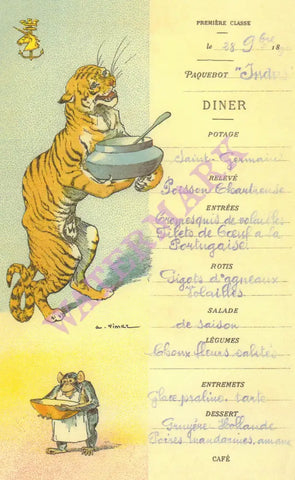 PREMIÈRE CLASSE
le 28 9bre 18
PAQUEBOT "Indus"
DINER
POTAGE
Saint-Germain
RELEVÉ
Poisson Chartreuse
ENTRÉES
Cromesquis de volailles
Filets de Bœuf à la
Portugaise
ROTIS
Gigots d'agneaux
Volailles
SALADE
de saison
LÉGUMES
Choux fleurs sautés
ENTREMETS
Glace praliné, tarte
DESSERT
Gruyère Hollande
Poires mandarines,
CAFÉ
A. Vimar
WATERMARK